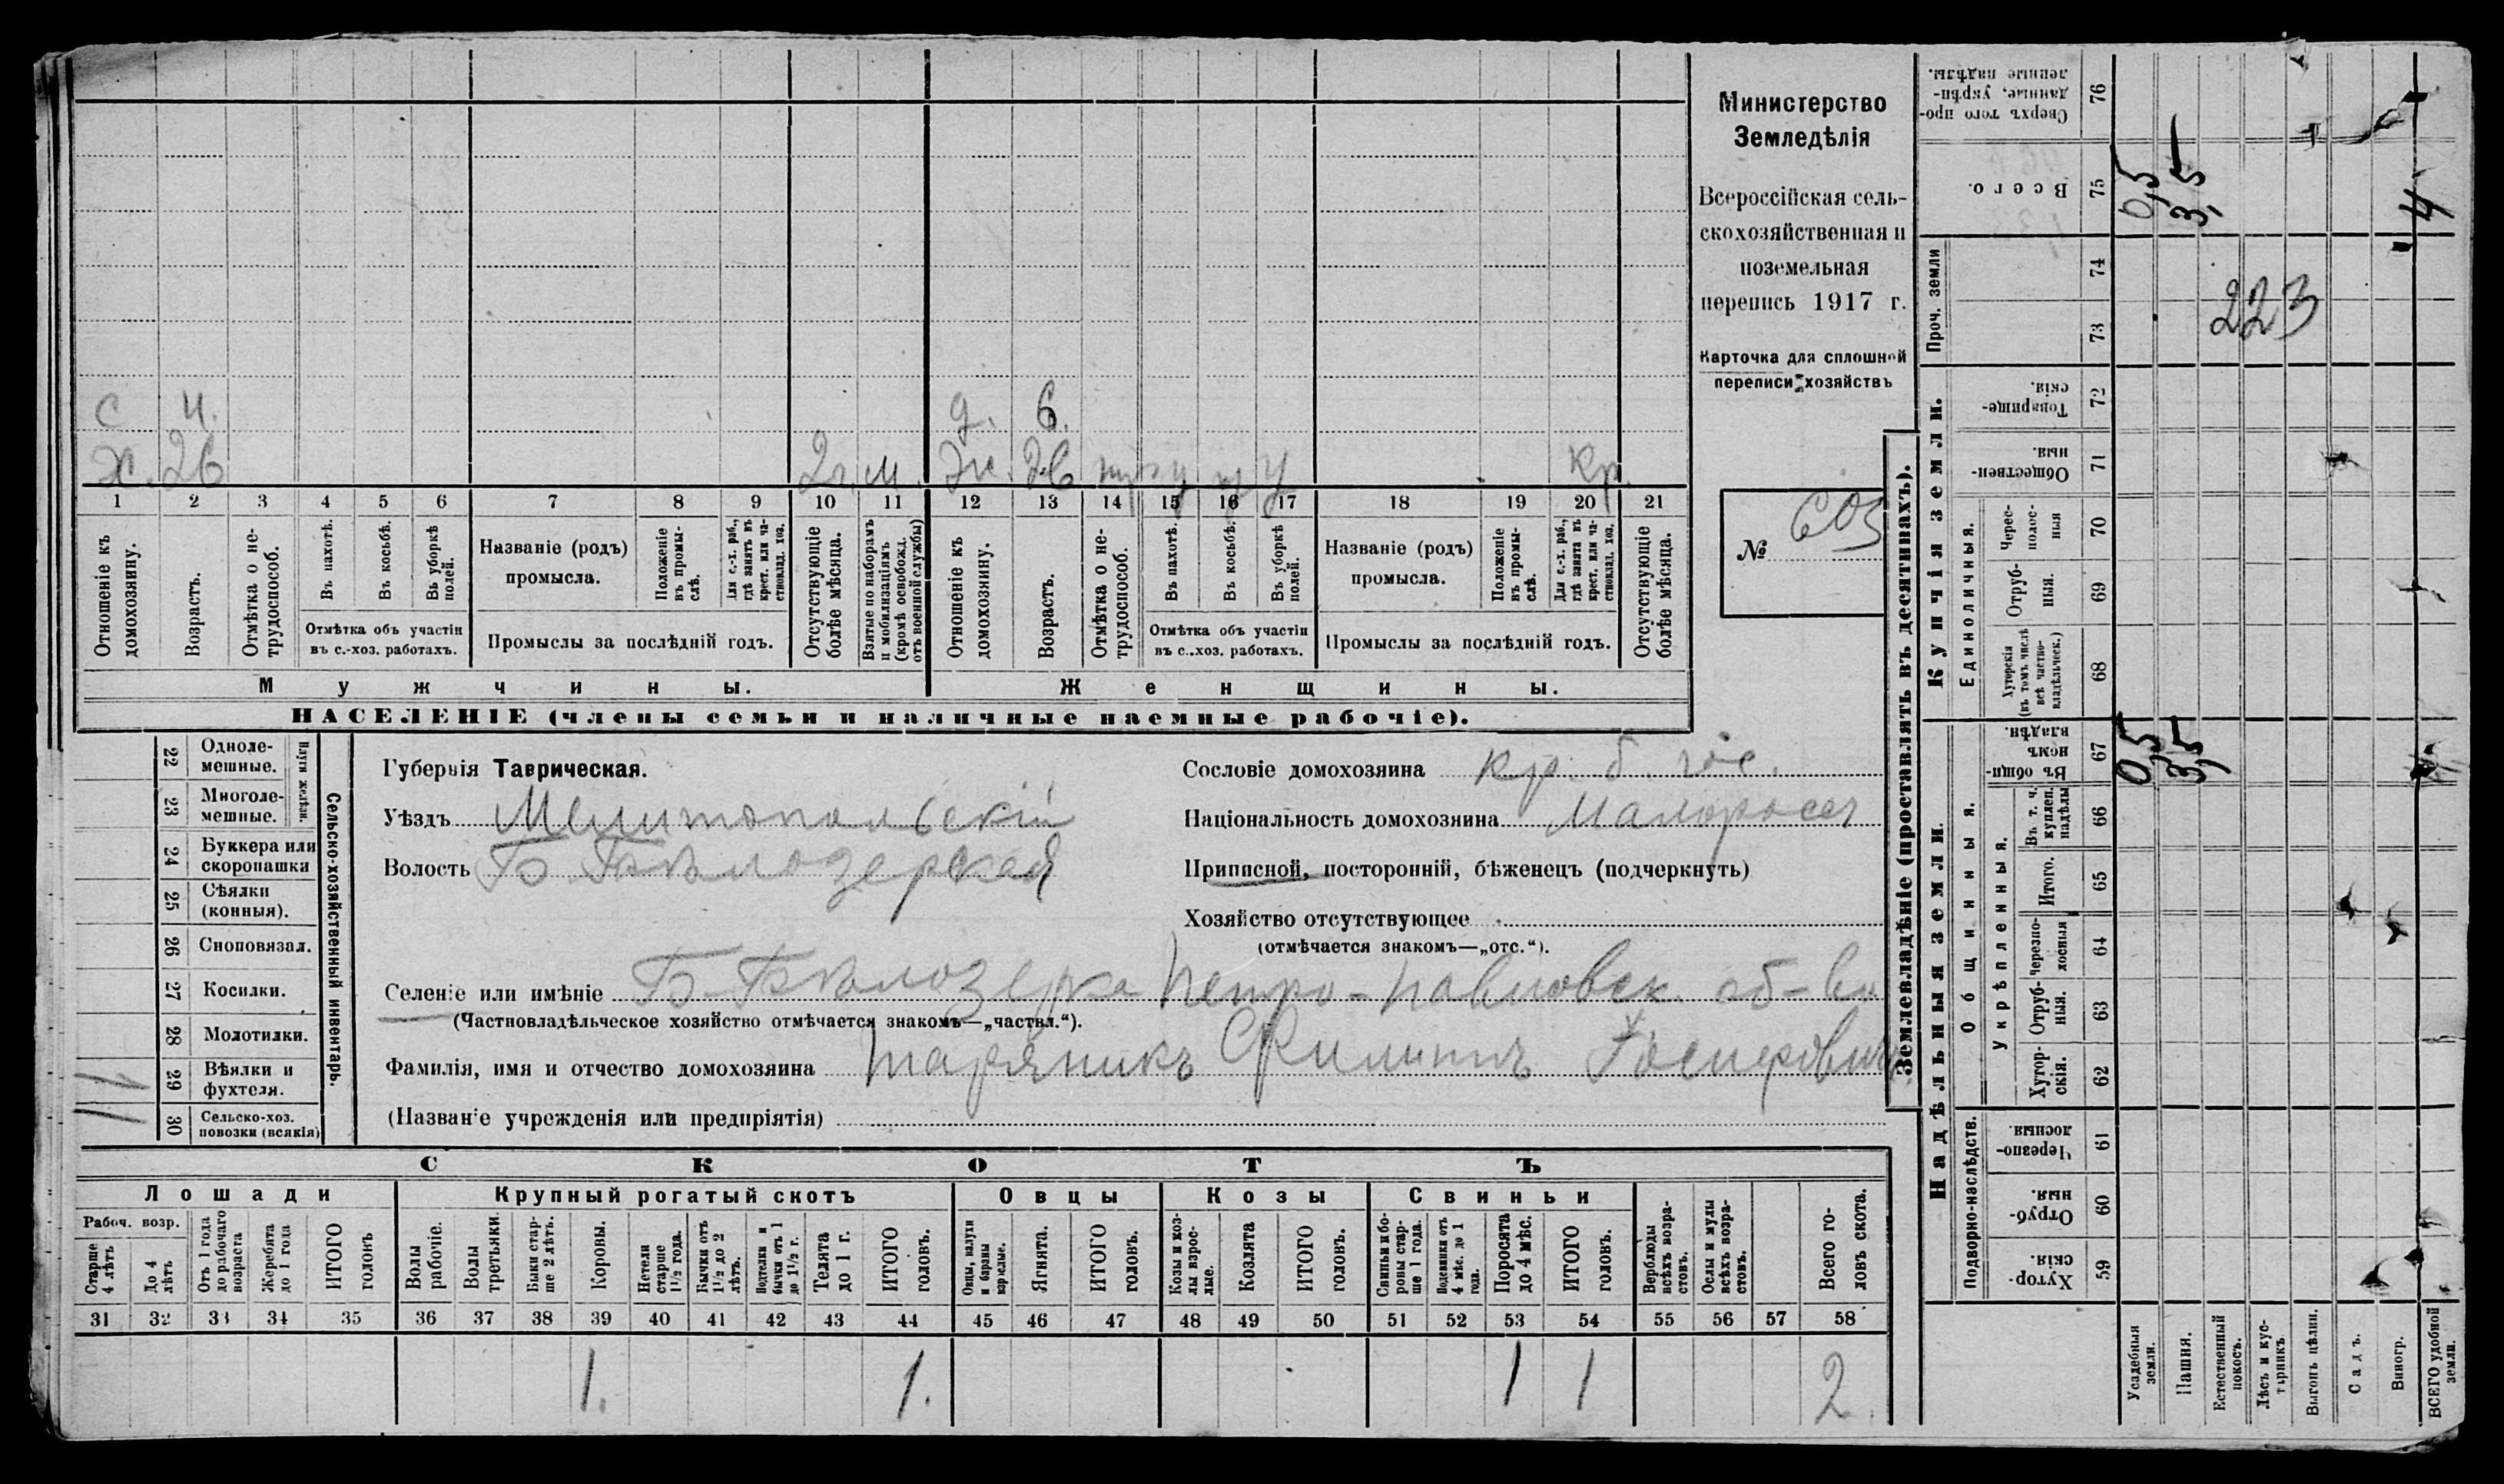 Министерство
Земледѣлія
Всероссійская сель-
скохозяйственная и
поземельная
перепись 1917 г.
Карточка для сплошной
переписи хозяйствъ
№ 603
с 4. д. 6.
Х. 26 2 г. м. Ж. 26 кр.
1 2 3 4 5 6 7 8 9 10 11 12 13 14 15 16 17 18 19 20 21
Отношеніе къ домохозяину.
Возрастъ.
Отмѣтка о не-трудоспособ.
Въ пахотѣ.
Въ косьбѣ.
Въ уборкѣ полей.
Отмѣтка объ участіи
въ с.-хоз. работахъ.
Названіе (родъ)
промысла.
Положеніе въ промы-слѣ.
Для с.-х. раб., гдѣ занятъ въ крест. или ча-стновлад. хоз.
Промыслы за послѣдній годъ.
Отсутствующіе болѣе мѣсяца.
Взятые по наборамъ и мобилизаціямъ (кромѣ освобожд. отъ военной службы)
Отношеніе къ домохозяину.
Возрастъ.
Отмѣтка о не-трудоспособ.
Въ пахотѣ.
Въ косьбѣ.
Въ уборкѣ полей.
Отмѣтка объ участіи
въ с.-хоз. работахъ.
Названіе (родъ)
промысла.
Положеніе въ промы-слѣ.
Для с.-х. раб., гдѣ занята въ крест. или ча-стновлад. хоз.
Промыслы за послѣдній годъ.
Отсутствующіе болѣе мѣсяца.
Мужчины. Женщины.
НАСЕЛЕНІЕ (члены семьи и наличные наемные рабочіе).
Сельско-хозяйственный инвентарь.
Плуги желѣзн.
22 Одноле-мешные.
23 Многоле-мешные.
24 Буккера или скоропашки
25 Сѣялки (конныя).
26 Сноповязал.
27 Косилки.
28 Молотилки.
29 Вѣялки и фухтеля.
30 Сельско-хоз. повозки (всякія)
Губернія Таврическая.
Уѣздъ Мелитопольскій
Волость Б. Бѣлозерская
Сословіе домохозяина кр. б. гос.
Національность домохозяина Малоросс
Приписной, посторонній, бѣженецъ (подчеркнуть)
Хозяйство отсутствующее
(отмѣчается знакомъ—„отс.“).
Селеніе или имѣніе Б-Бѣлозерка Петро-павловск. об-во
(Частновладѣльческое хозяйство отмѣчается знакомъ—„частвл.“).
Фамилія, имя и отчество домохозяина Таряникъ Филиппъ Іосифович
(Названіе учрежденія или предпріятія)
СКОТЪ
Лошади Крупный рогатый скотъ Овцы Козы Свиньи
Рабоч. возр.
Старше 4 лѣтъ
До 4 лѣтъ
Отъ 1 года до рабочаго возраста
Жеребята до 1 года
ИТОГО головъ
Волы рабочіе.
Волы третьяки.
Быки стар-ше 2 лѣтъ.
Коровы.
Нетели старше 1½ года.
Бычки отъ 1½ до 2 лѣтъ.
Подтелки и бычки отъ 1 до 1½ г.
Телята до 1 г.
ИТОГО головъ.
Овцы, валухи и бараны взрослые.
Ягнята.
ИТОГО головъ.
Козы и коз-лы взрос-лые.
Козлята
ИТОГО головъ.
Свиньи и бо-ровы стар-ше 1 года.
Подсвинки отъ 4 мѣс. до 1 года.
Поросята до 4 мѣс.
ИТОГО головъ.
Верблюды всѣхъ возра-стовъ.
Ослы и мулы всѣхъ возра-стовъ.
Всего го-ловъ скота.
31 32 33 34 35 36 37 38 39 40 41 42 43 44 45 46 47 48 49 50 51 52 53 54 55 56 57 58
1. 1. 1 1 2
Землевладѣніе (проставлять въ десятинахъ).
Надѣльныя земли.
Купчія земли.
Проч. земли
Подворно-наслѣдств.
Общинныя.
Укрѣпленныя.
Единоличныя.
Сверхъ того про-данные, укрѣп-ленные надѣлы. 76
Всего. 75 0,5 3,5 4
74
73 223
Товарище-скія. 72
Обществен-ныя. 71
Черес-полос-ныя 70
Отруб-ныя. 69
Хуторскія (въ томъ числѣ всѣ частно-владѣльческ.) 68
Въ общин-номъ владѣн. 67 0,5 3,5
Въ т. ч. куплен. надѣлы 66
Итого. 65
Черезпо-лосныя 64
Отруб-ныя. 63
Хутор-скія. 62
Черезпо-лосныя. 61
Отруб-ныя. 60
Хутор-скія. 59
Усадебныя земли.
Пашня.
Естественный покосъ.
Лѣсъ и кус-тарникъ.
Выгонъ цѣлин.
Садъ.
Виногр.
ВСЕГО удобной земли.